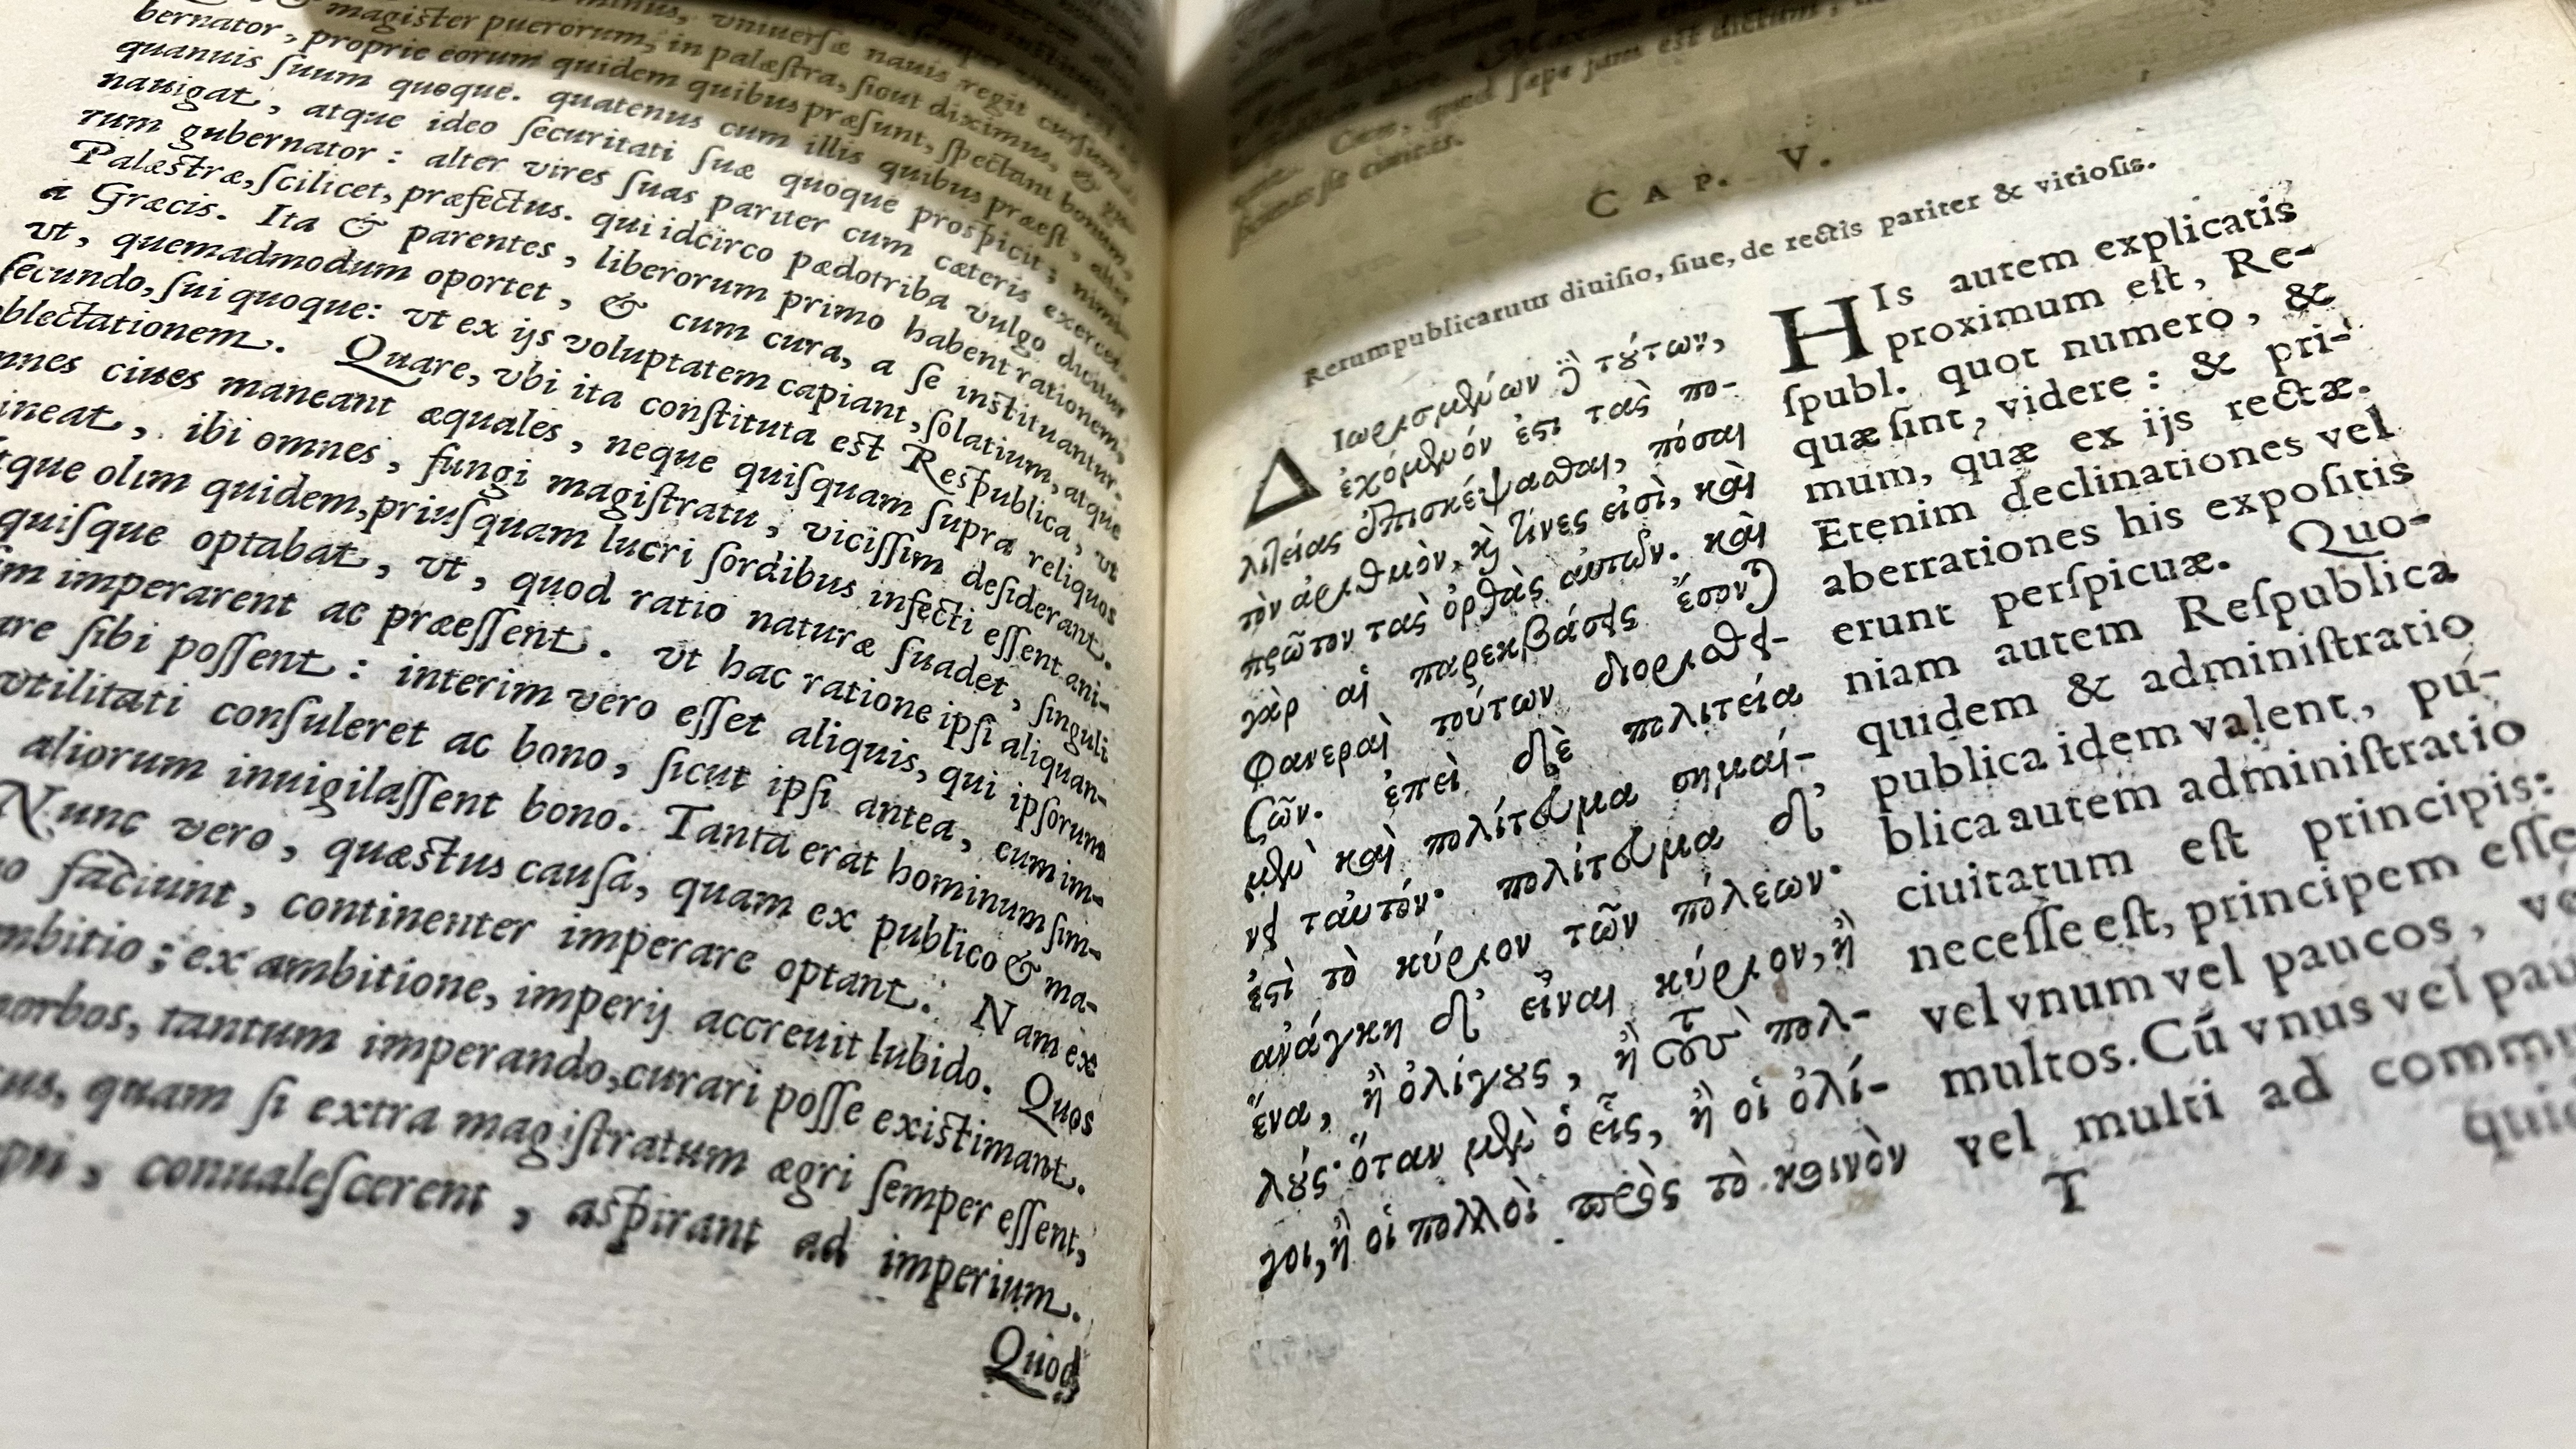 magister puerorum, in palæſtra, ſicut diximus, &
bernator, proprie eorum quidem quibus præſunt, ſpectant bonum,
quanuis ſuum quoque. quatenus cum illis quibus præeſt, alter
nauigat, atque ideo ſecuritati ſuæ quoque proſpicit, nimi-
rum gubernator: alter vires ſuas pariter cum cæteris exercet.
Palæſtræ, ſcilicet, præfectus. qui idcirco pædotriba vulgo dicitur
a Græcis. Ita & parentes, liberorum primo habent rationem,
vt, quemadmodum oportet, & cum cura, a ſe inſtituantur.
ſecundo, ſui quoque: vt ex ijs voluptatem capiant, ſolatium, atque
blectationem. Quare, vbi ita conſtituta eſt Reſpublica, vt
nnes ciues maneant æquales, neque quiſquam ſupra reliquos
ineat, ibi omnes, fungi magiſtratu, viciſſim deſiderant.
tque olim quidem, priuſquam lucri ſordibus infecti eſſent ani-
quiſque optabat, vt, quod ratio naturæ ſuadet, ſinguli
im imperarent ac præeſſent. vt hac ratione ipſi aliquan-
are ſibi poſſent: interim vero eſſet aliquis, qui ipſorum
vtilitati conſuleret ac bono, ſicut ipſi antea, cum im-
aliorum inuigilaſſent bono. Tanta erat hominum ſim-
Nunc vero, quæſtus cauſa, quam ex publico & ma-
o faciunt, continenter imperare optant. Nam ex
mbitio; ex ambitione, imperij accreuit lubido. Quos
morbos, tantum imperando, curari poſſe exiſtimant.
us, quam ſi extra magiſtratum ægri ſemper eſſent,
conualeſcerent, aſpirant ad imperium.
Quod
CAP. V.
Rerumpublicarum diuiſio, ſiue, de rectis pariter & vitioſis.
Διωρισμένων δὲ τούτων,
ἐχόμενόν ἐστι τὰς πο-
λιτείας ἐπισκέψασθαι, πόσαι
τὸν ἀριθμὸν, καὶ τίνες εἰσὶ, καὶ
πρῶτον τὰς ὀρθὰς αὐτῶν. καὶ
γὰρ αἱ παρεκβάσεις ἔσονται
φανεραὶ τούτων διορισθει-
σῶν. ἐπεὶ δὲ πολιτεία
μὲν καὶ πολίτευμα σημαί-
νει ταὐτόν· πολίτευμα δ’
ἐστὶ τὸ κύριον τῶν πόλεων·
ἀνάγκη δ’ εἶναι κύριον, ἢ
ἕνα, ἢ ὀλίγους, ἢ τοὺς πολ-
λούς· ὅταν μὲν ὁ εἷς, ἢ οἱ ὀλί-
γοι, ἢ οἱ πολλοὶ πρὸς τὸ κοινὸν
HIs autem explicatis
proximum eſt, Re-
ſpubl. quot numero, &
quæ ſint, videre: & pri-
mum, quæ ex ijs rectæ.
Etenim declinationes vel
aberrationes his expoſitis
erunt perſpicuæ. Quo-
niam autem Reſpublica
quidem & adminiſtratio
publica idem valent, pú-
blica autem adminiſtratio
ciuitatum eſt principis:
neceſſe eſt, principem eſſe
vel vnum vel paucos, ve
multos. Cũ vnus vel pau
vel multi ad commu
T